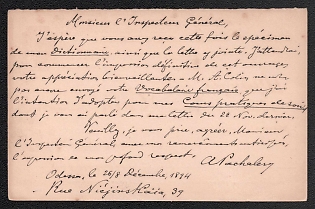 Monsieur l'Inspecteur Général,
J'espère que vous avez reçu cette fois le spécimen
de mon Dictionnaire ainsi que la lettre y jointe. J'attendrai,
pour commencer l'impression définitive de cet ouvrage,
votre appréciation bienveillante. M. A. Colin ne m'a
pas encore envoyé votre Vocabulaire français que j'ai
l'intention d'adopter pour mes Cours pratiques
dont je vous ai parlé dans ma lettre du 20 Nov. dernier.
Veuillez, je vous prie, agréer, Monsieur
l'Inspecteur Général, avec mes remerciements anticipés,
l'expression de mon profond respect. A. Pachalery
Odessa, le 26/8 Décembre 1894
Rue Niéjinskaïa, 39